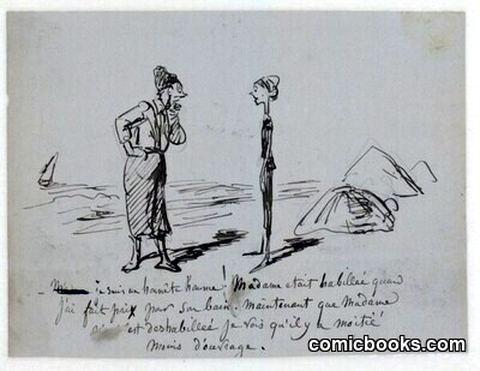 je suis un honnête homme! Madame était habillée quan
j'ai fait prix pour son bain. Maintenant que Madame
s'est deshabillée je vois qu'il y a moitié
moins d'ouvrage.
comicbooks.com